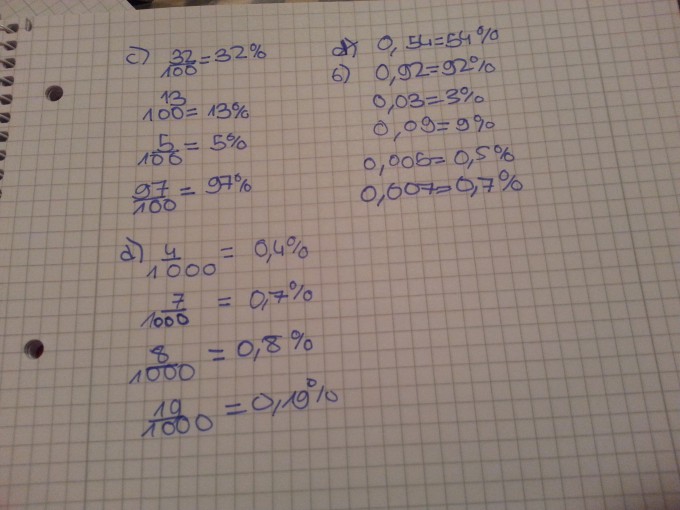 c) 32/100=32%
13/100=13%
5/100=5%
97/100=97%
d) 4/1000=0,4%
7/1000=0,7%
8/1000=0,8%
19/1000=0,19%
0,54=54%
b) 0,92=92%
0,03=3%
0,09=9%
0,006=0,5%
0,007=0,7%